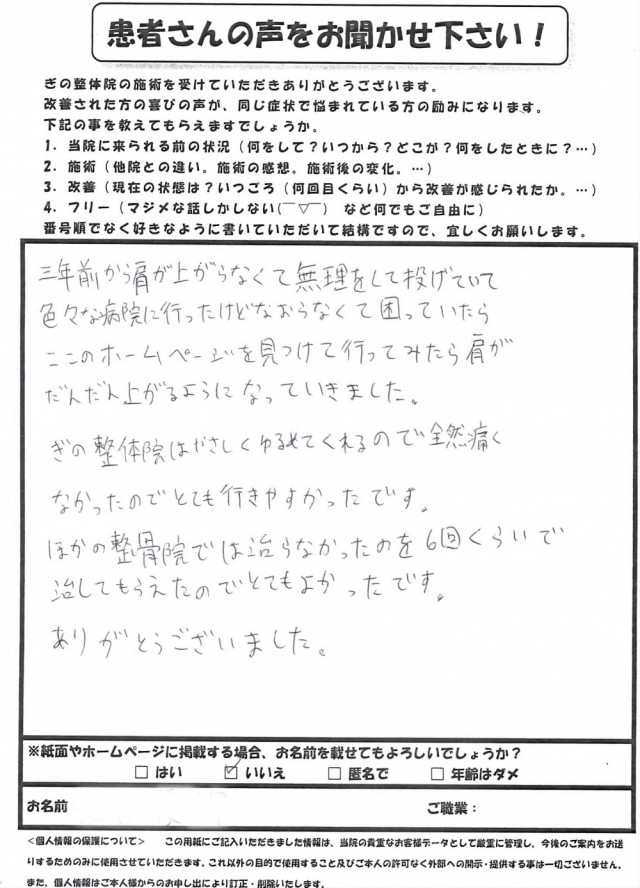 患者さんの声をお聞かせ下さい！
ぎの整体院の施術を受けていただきありがとうございます。
改善された方の喜びの声が、同じ症状で悩まれている方の励みになります。
下記の事を教えてもらえますでしょうか。
1．当院に来られる前の状況（何をして？いつから？どこが？何をしたときに？…）
2．施術（他院との違い。施術の感想。施術後の変化。…）
3．改善（現在の状態は？いつごろ（何回目くらい）から改善が感じられたか。…）
4．フリー（マジメな話しかしない(￣▽￣)　など何でもご自由に）
番号順でなく好きなように書いていただいて結構ですので、宜しくお願いします。
三年前から肩が上がらなくて無理をして投げていて
色々な病院に行ったけどなおらなくて困っていたら
ここのホームページを見つけて行ってみたら肩が
だんだん上がるようになっていきました。
ぎの整体院はやさしくゆるめてくれるので全然痛く
なかったのでとても行きやすかったです。
ほかの整骨院では治らなかったのを6回くらいで
治してもらえたのでとてもよかったです。
ありがとうございました。
※紙面やホームページに掲載する場合、お名前を載せてもよろしいでしょうか？
□ はい　☑ いいえ　□ 匿名で　□ 年齢はダメ
お名前　ご職業：
＜個人情報の保護について＞　この用紙にご記入いただきました情報は、当院の貴重なお客様データとして厳重に管理し、今後のご案内をお送
りするためのみに使用させていただきます。これ以外の目的で使用すること及びご本人の許可なく外部への開示・提供する事は一切ございません。
また、個人情報はご本人様からのお申し出により訂正・削除いたします。